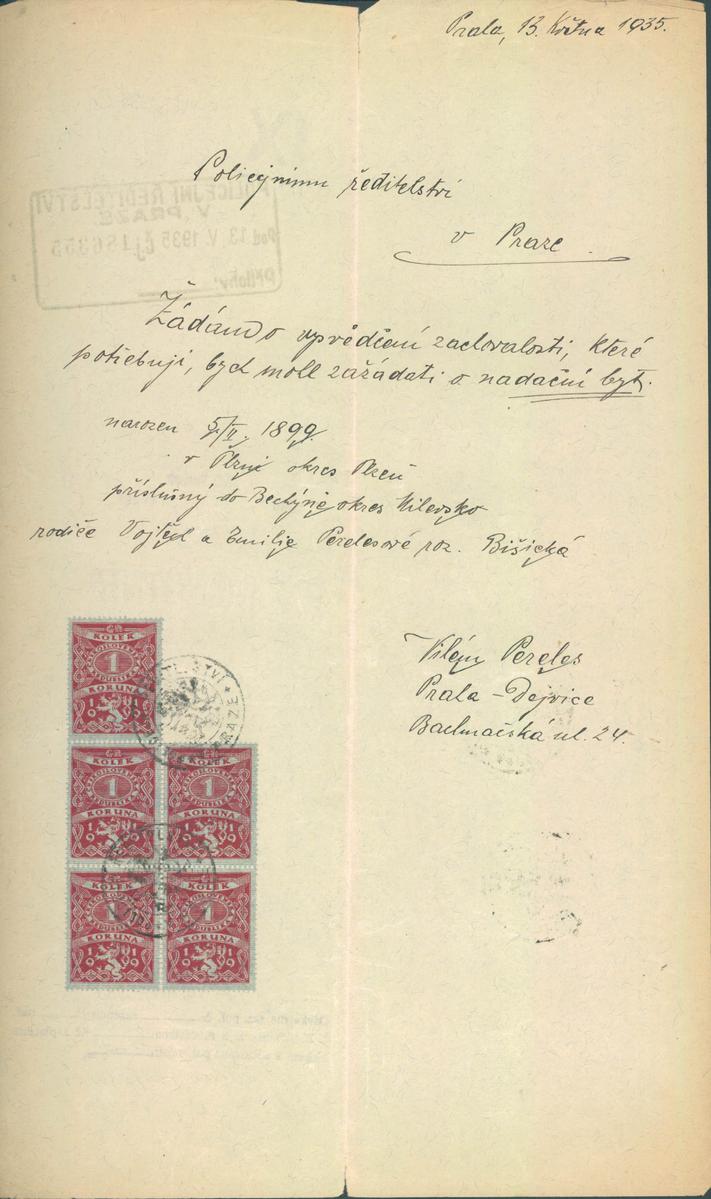 Praha, 13. Května 1935.
Policejnímu ředitelství
v Praze
POLICEJNÍ ŘEDITELSTVÍ
V PRAZE
Pod. 13. V. 1935 čj 186355
Přílohy:
Žádám o vysvědčení zachovalosti, které
potřebuji, bych mohl zažádati o nadační byt.
narozen 5/II. 1899.
v Plzni okres Plzeň
příslušný do Bechyně okres Milevsko
rodiče Vojtěch a Emilie Perelesové roz. Bišická
Vilém Pereles
Praha - Dejvice
Bachmačská ul. 24.
KOLEK
1
KORUNA
1919
KOLEK
1
KORUNA
1919
KOLEK
1
KORUNA
1919
KOLEK
1
KORUNA
1919
KOLEK
1
KORUNA
1919